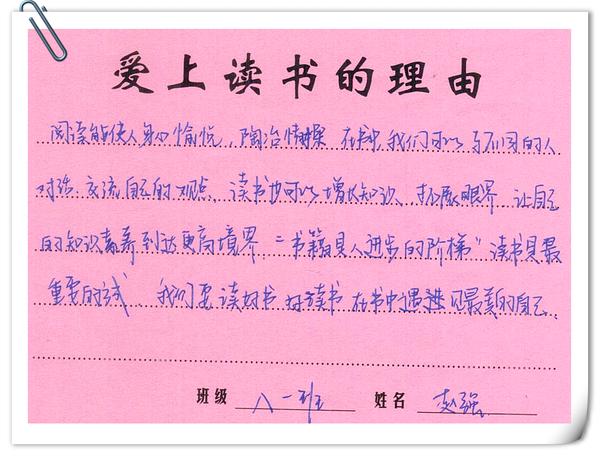 爱上读书的理由
阅读能使人身心愉悦，陶冶情操 在书中，我们可以与不同的人
对话，交流自己的观点。读书也可以增长知识，拓展眼界 让自己
的知识素养到达更高境界。“书籍是人进步的阶梯”读书是最
重要的方式 我们要读好书 好读书 在书中遇进见最美的自己。
班级 八一班 姓名 赵强